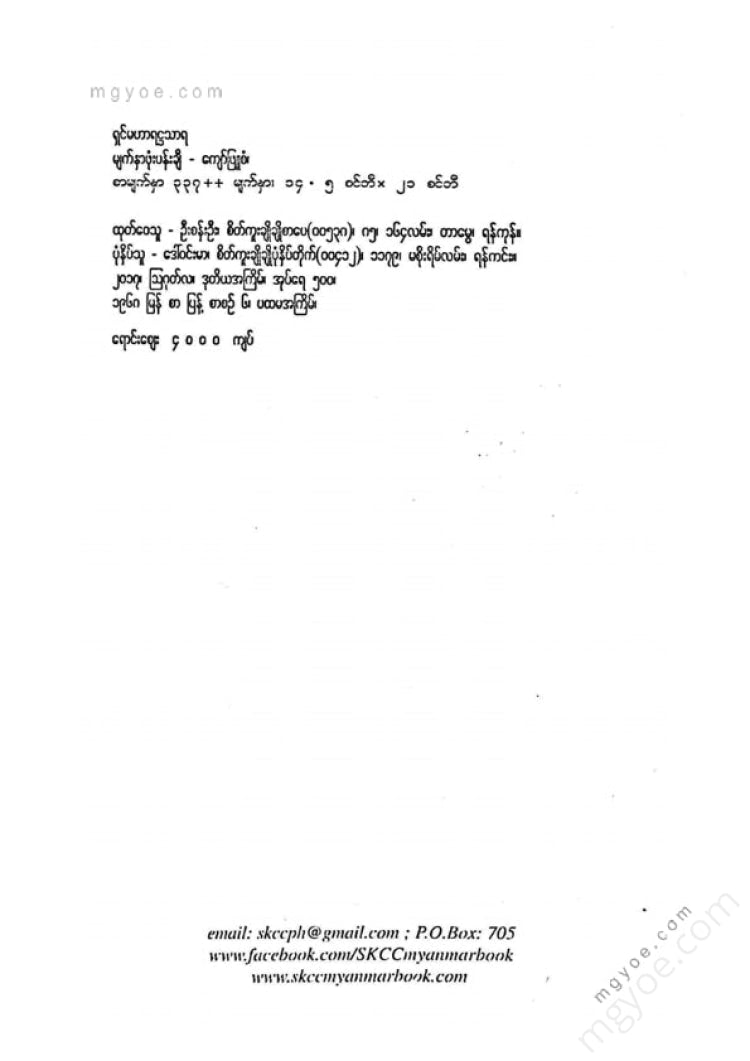 mgyoe.com
ရှင်မဟာရဋ္ဌသာရ
မျက်နှာဖုံးပန်းချီ - ကျော်ဖြူစံ၊
စာမျက်နှာ ၃၃၇++ မျက်နှာ၊ ၁၄.၅ စင်တီ× ၂၁ စင်တီ
ထုတ်ဝေသူ - ဦးစန်းဦး၊ စိတ်ကူးချိုချိုစာပေ(၀၀၅၃၈)၊ ၈၅၊ ၁၆၄လမ်း၊ တာမွေ၊ ရန်ကုန်။
ပုံနှိပ်သူ - ဒေါ်ဝင်းမာ၊ စိတ်ကူးချိုချိုပုံနှိပ်တိုက်(၀၀၄၁၂)၊ ၁၁၇၉၊ မစိုးရိမ်လမ်း၊ ရန်ကင်း။
၂၀၁၇၊ သြဂုတ်လ၊ ဒုတိယအကြိမ်၊ အုပ်ရေ ၅၀၀၊
၁၉၆၈ မြန် စာ ပြန့် စာစဉ် ၆၊ ပထမအကြိမ်၊
ရောင်းဈေး ၄၀၀၀ ကျပ်
email: skccph@gmail.com ; P.O.Box: 705
www.facebook.com/SKCCmyanmarbook
www.skccmyanmarbook.com
mgyoe.com
mgyoe.com